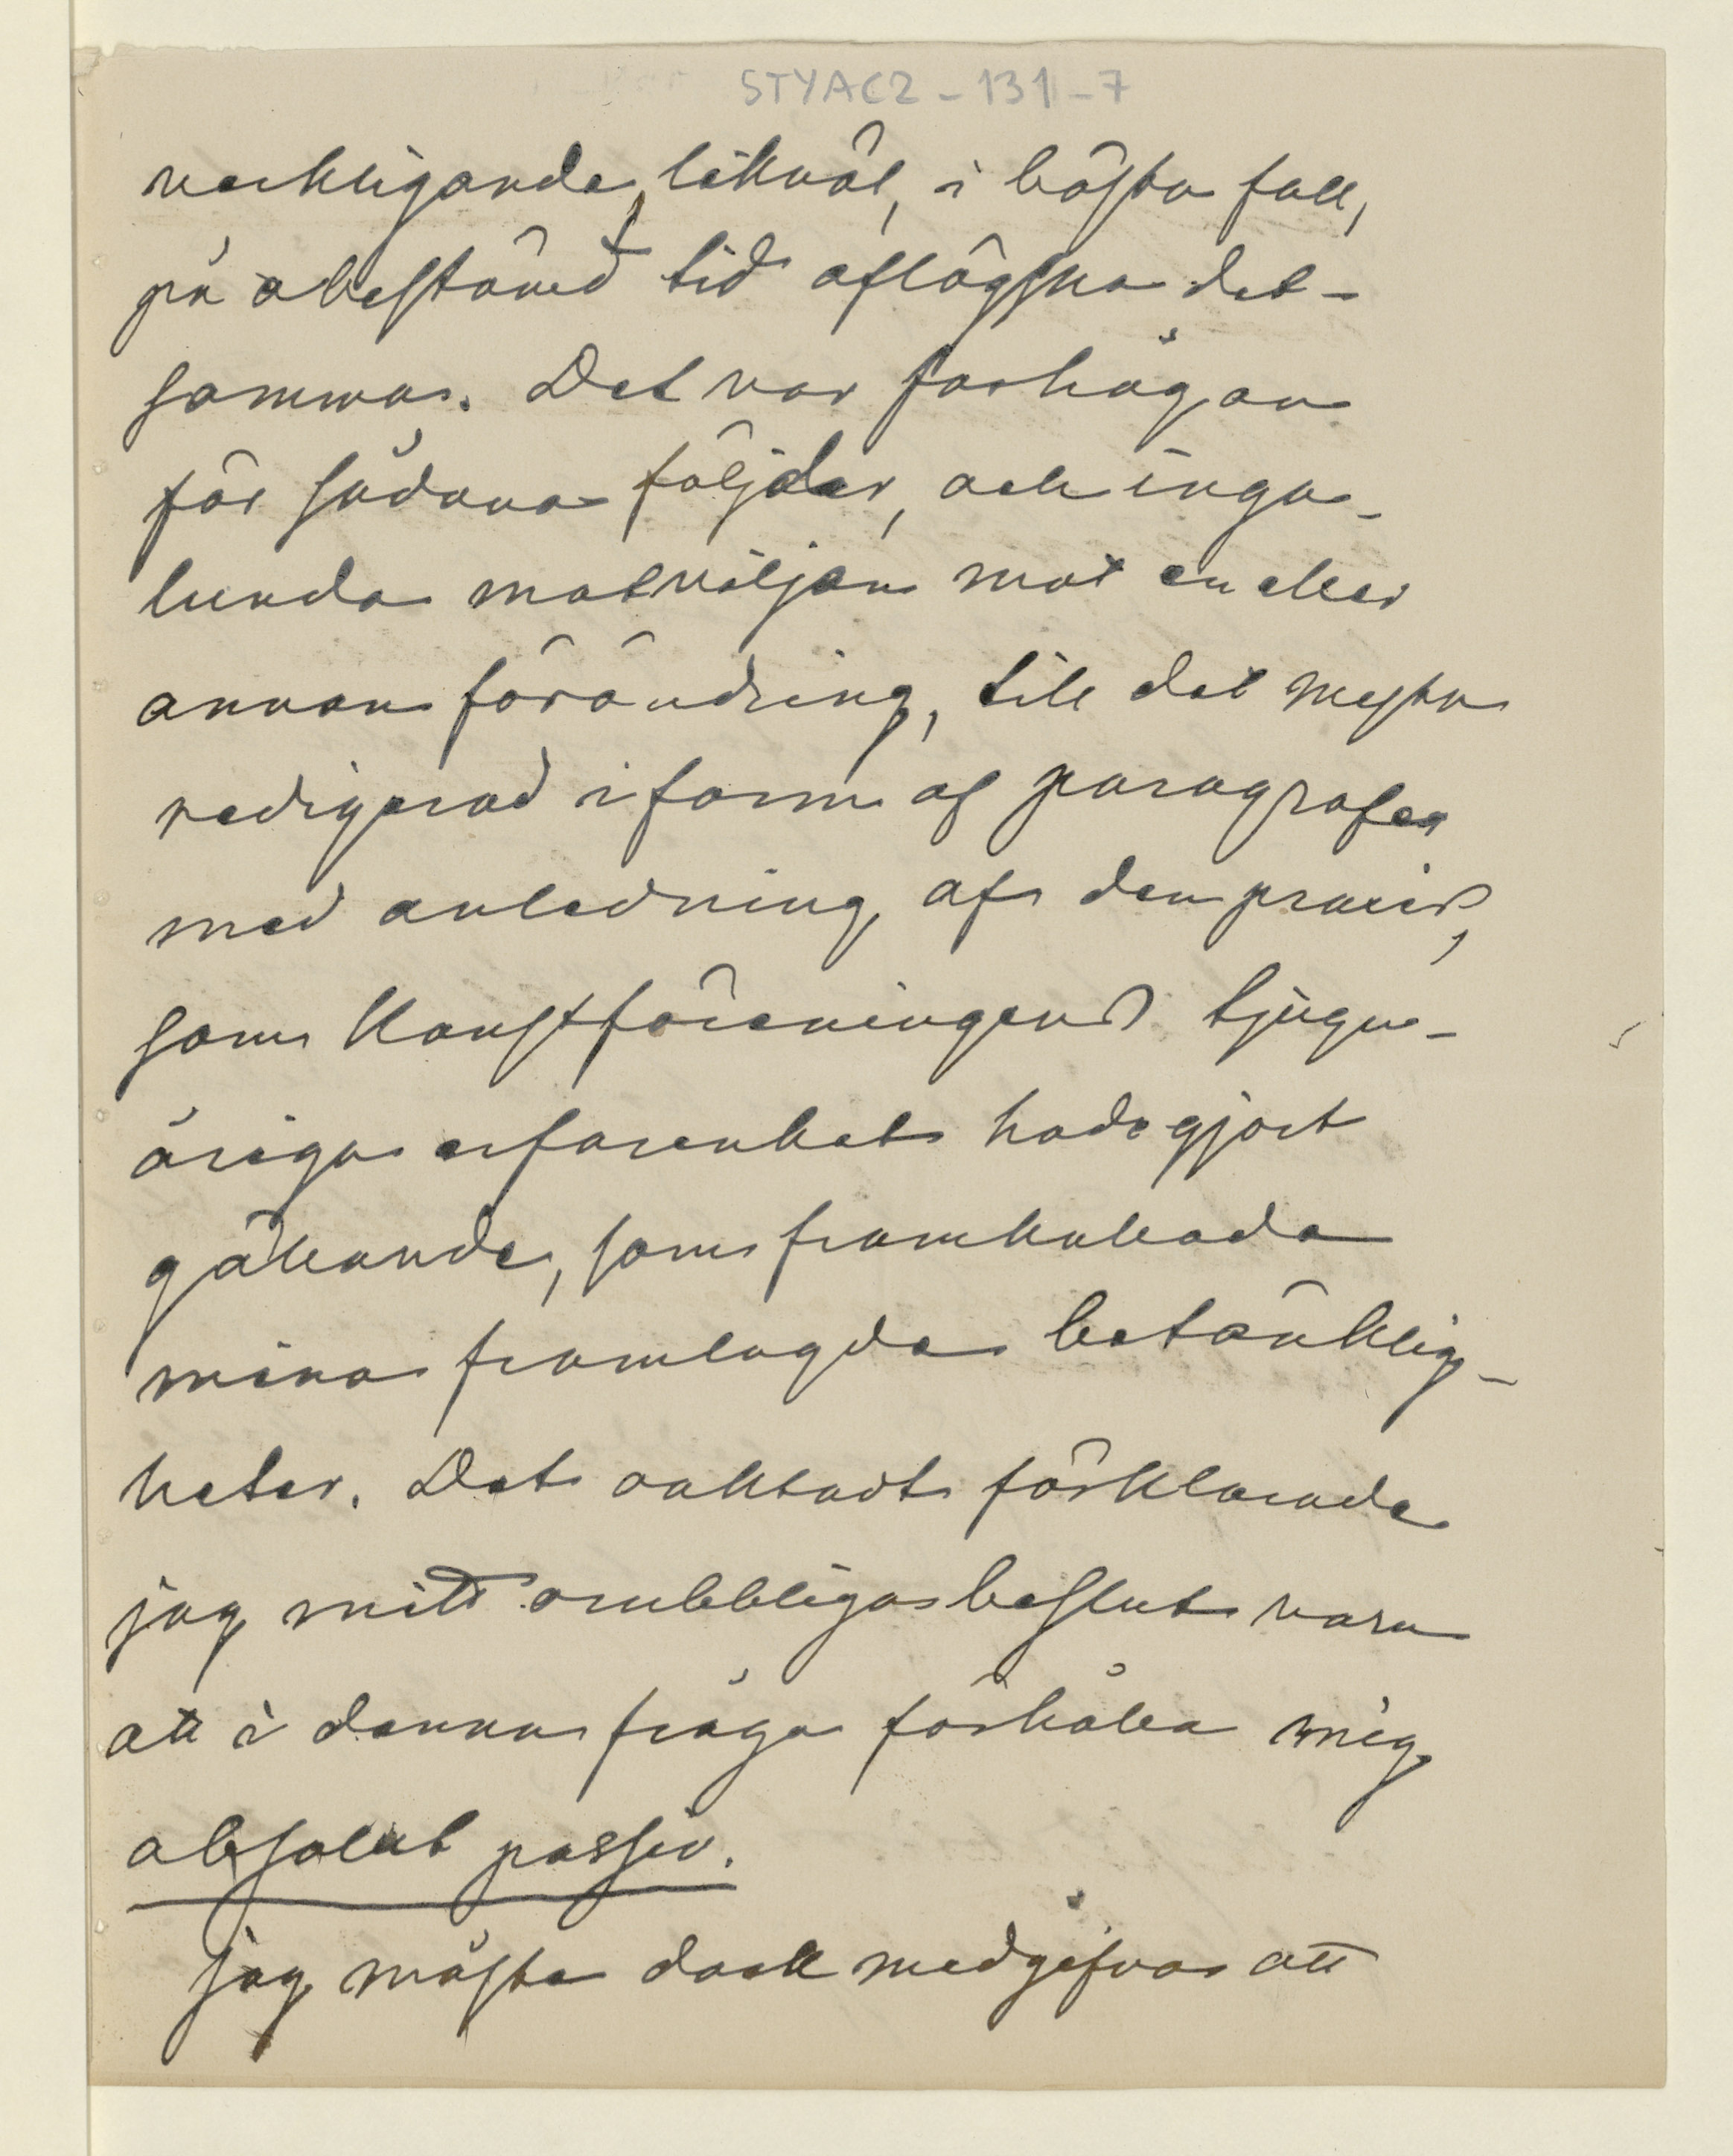 STYAC2-131-7
verkligande, likväl, i bästa fall,
på obestämd tid aflägsna det-
samma. Det var farhågan
för sådana följder, och inga-
lunda motviljan mot en eller
annan förändring, till det mesta
redigerad i form af paragrafer
med anledning af den praxis,
som Konstföreningens tjugu-
åriga erfarenhet hade gjort
gällande, som framkallade
mina framlagda betänklig-
heter. Det oaktadt förklarade
jag mitt orubbliga beslut vara
att i denna fråga förhålla mig
absolut passiv.
Jag måste dock medgifva att